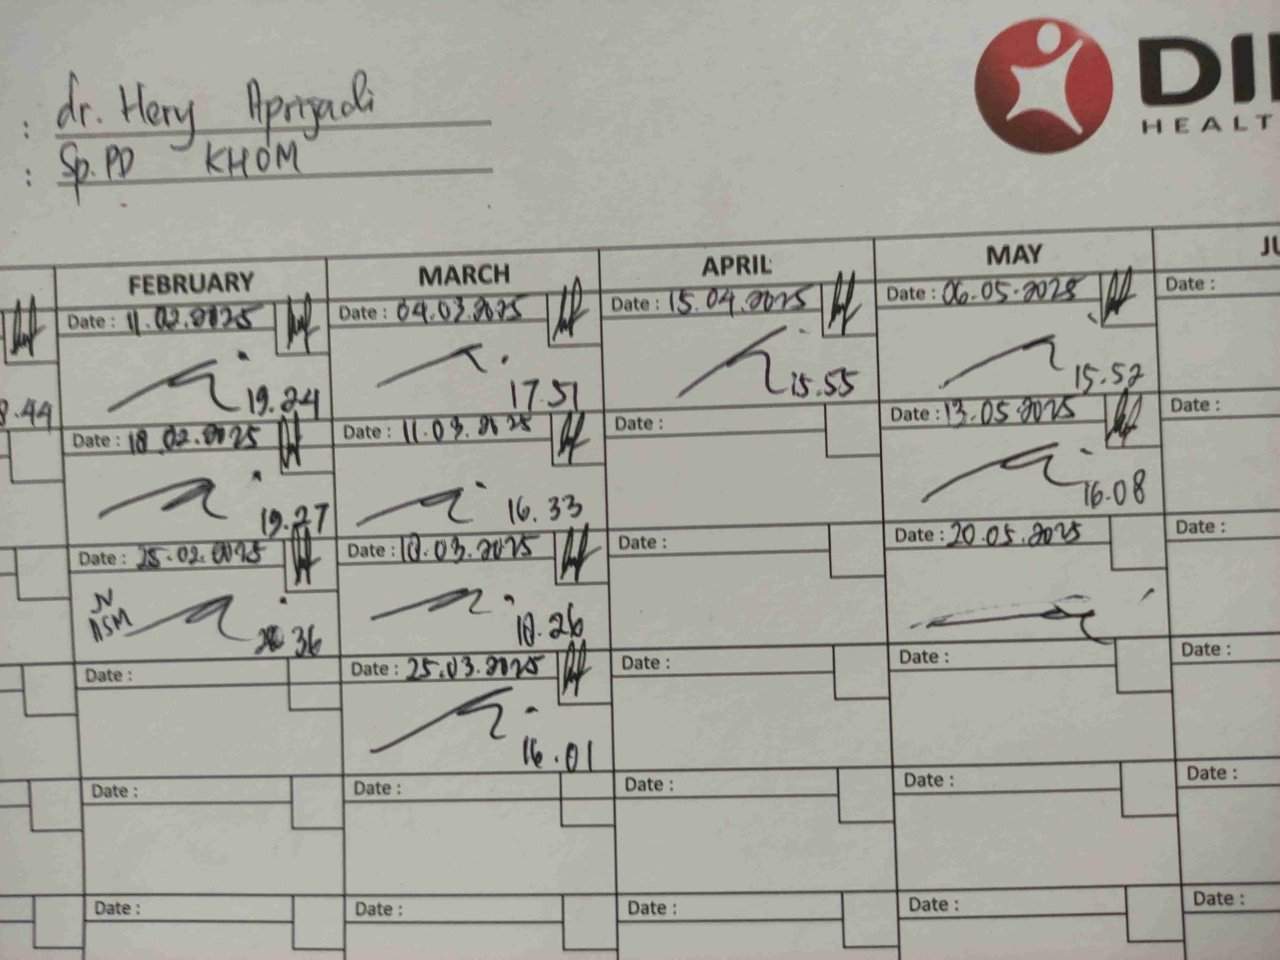 : dr. Hery Apriyadi
: Sp.PD KHOM
DI
HEALT
FEBRUARY MARCH APRIL MAY JU
Date : 11.02.2025 Date : 04.03.2025 Date : 15.04.2025 Date : 06.05.2025 Date :
8.44 19.24 17.51 15.55 15.52
Date : 18.02.2025 Date : 11.03.2025 Date : Date : 13.05.2025 Date :
19.27 16.33 16.08
Date : 25.02.2025 Date : 18.03.2025 Date : Date : 20.05.2025 Date :
JV
ASM
36 18.26
Date : Date : 25.03.2025 Date : Date : Date :
16.01
Date : Date : Date : Date : Date :
Date : Date : Date : Date : Date :